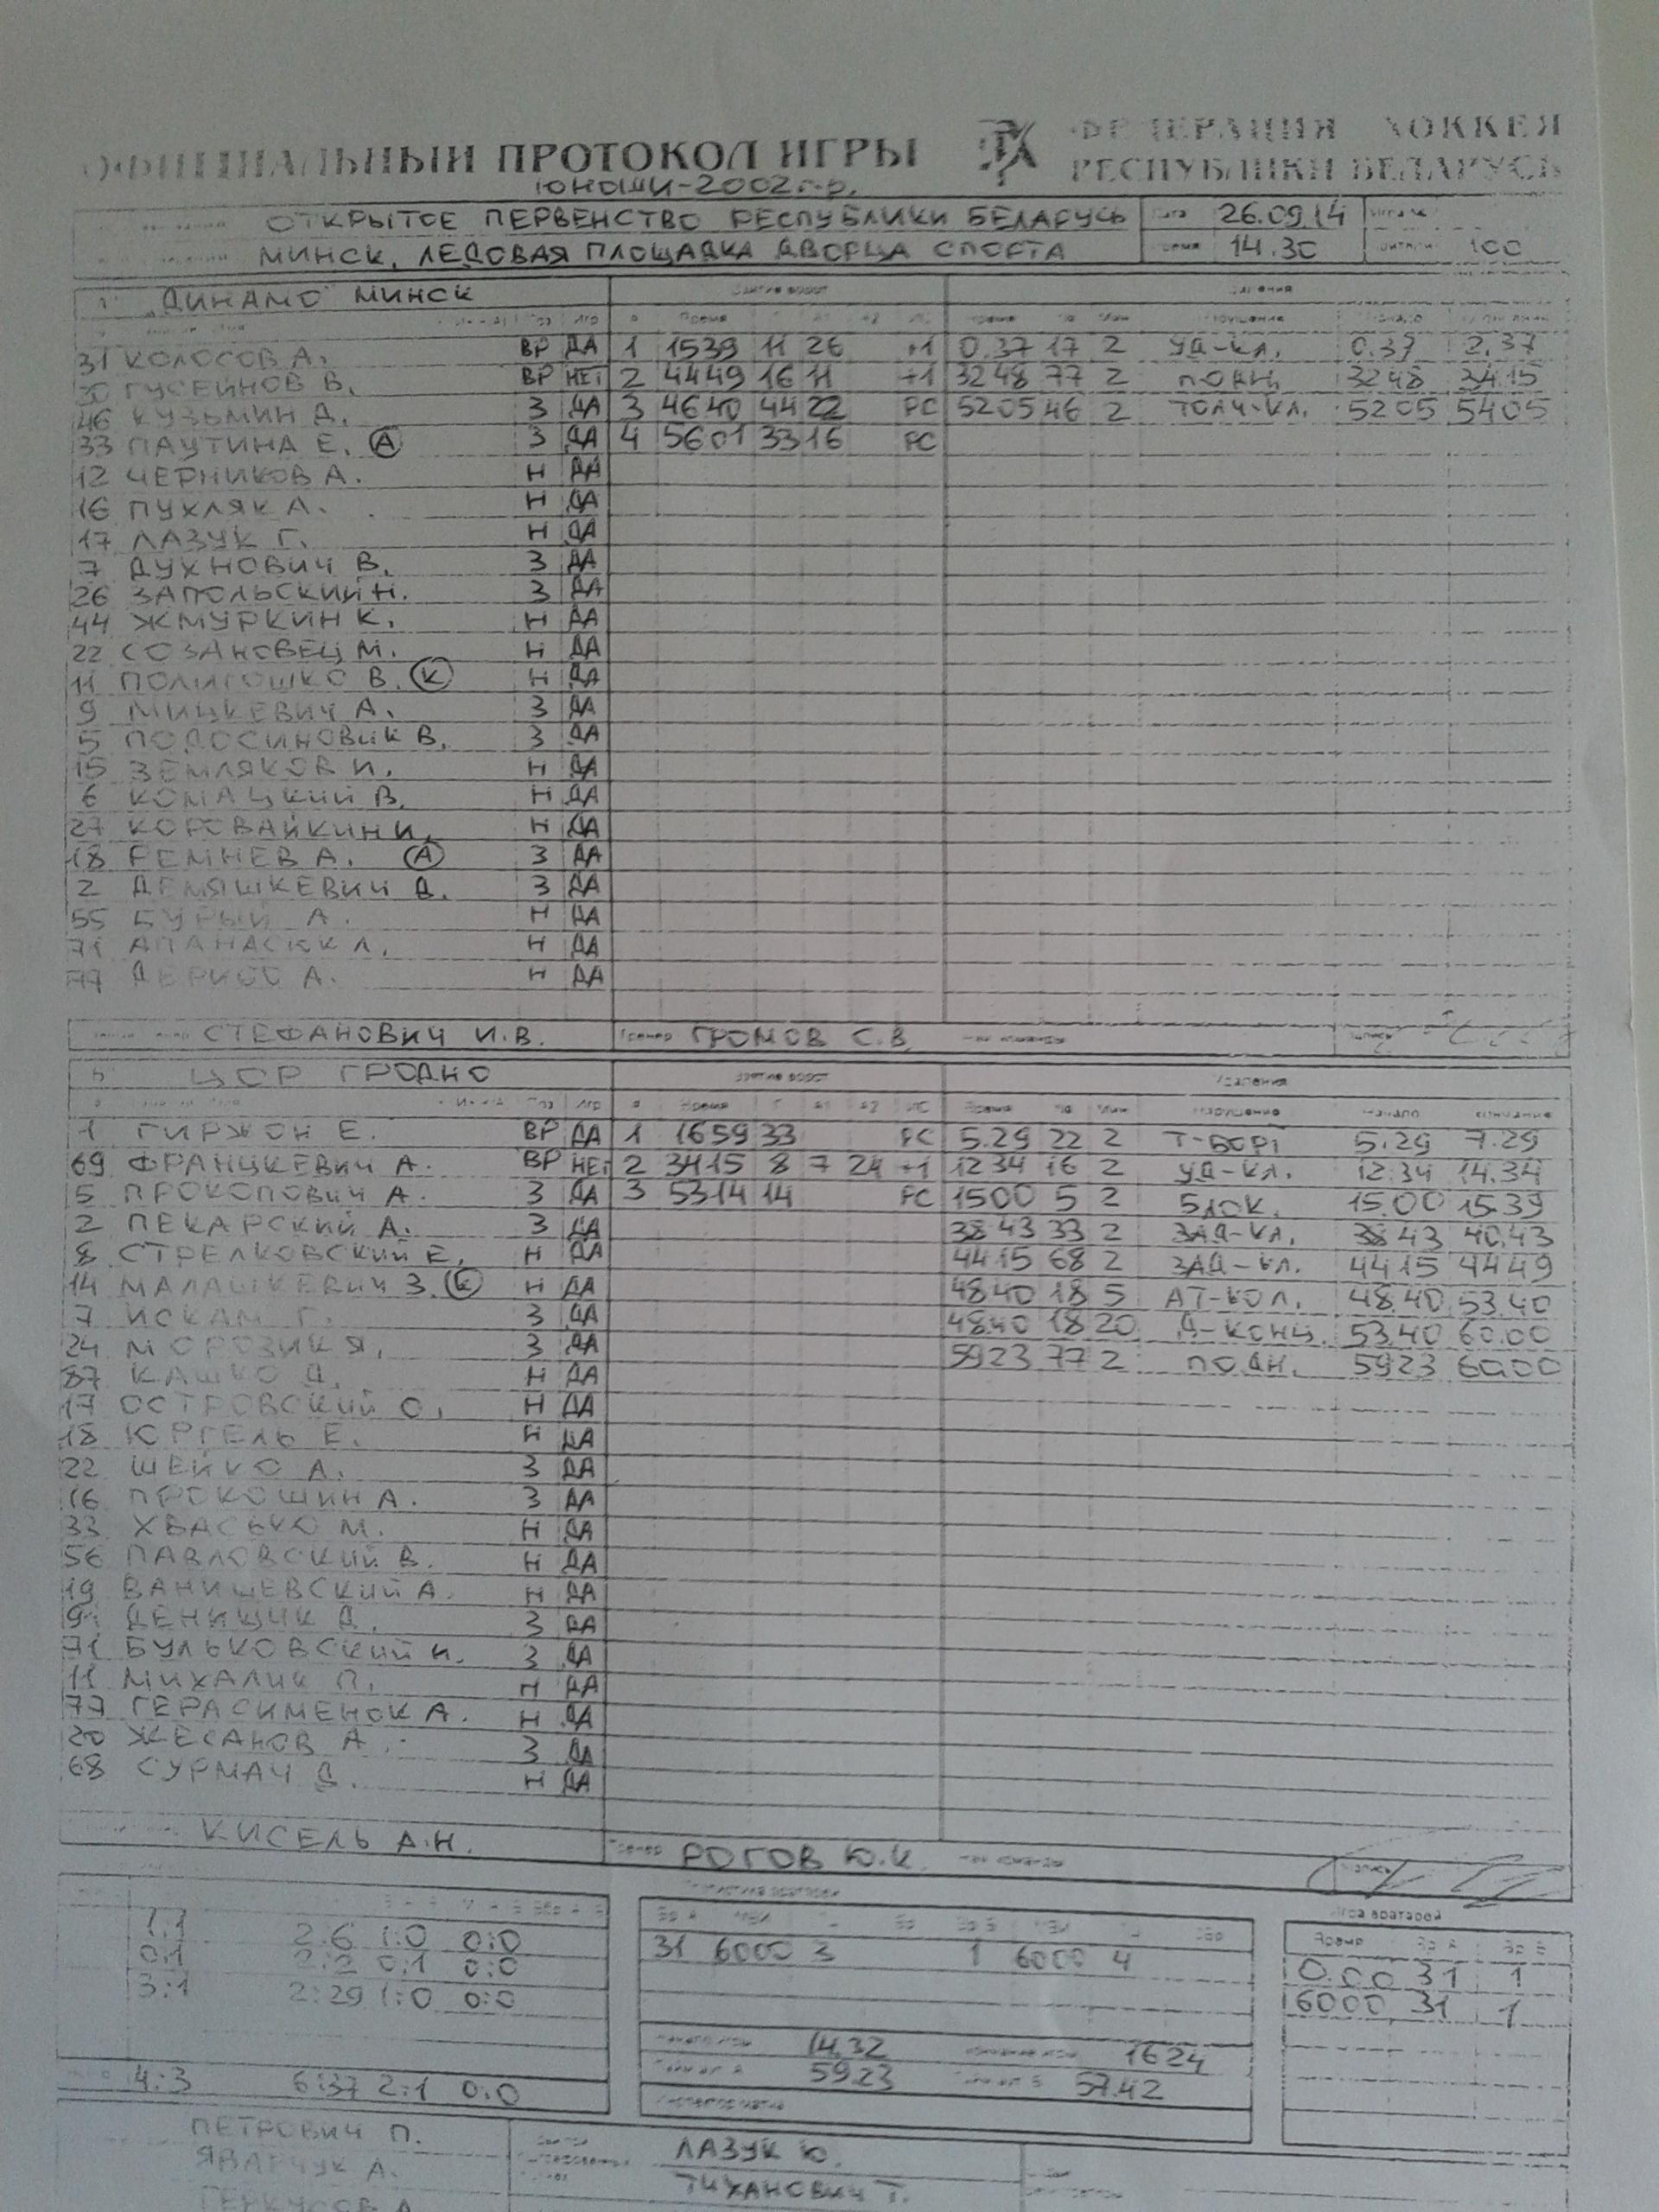 ОФИЦИАЛЬНЫЙ ПРОТОКОЛ ИГРЫ ФЕДЕРАЦИЯ ХОККЕЯ
РЕСПУБЛИКИ БЕЛАРУСЬ
ЮНОШИ-2002 г.р.
ОТКРЫТОЕ ПЕРВЕНСТВО РЕСПУБЛИКИ БЕЛАРУСЬ Дата 26.09.14
МИНСК, ЛЕДОВАЯ ПЛОЩАДКА ДВОРЦА СПОРТА Время 14.30 100
"ДИНАМО" МИНСК Взятие ворот Удаления
Время Время
31 КОЛОСОВ А. ВР ДА 1 1539 11 26 +1 0.37 17 2 УД-КЛ. 0.37 2.37
30 ГУСЕЙНОВ В. ВР НЕТ 2 4449 16 11 +1 3248 77 2 ПОДН. 3248 3415
46 КУЗЬМИН Д. З ДА 3 4640 44 22 РС 5205 46 2 ТОЛЧ-КЛ. 5205 5405
33 ПАУТИНА Е. А З ДА 4 5601 33 16 РС
12 ЧЕРНИКОВ А. Н ДА
16 ПУХЛЯК А. Н ДА
17 ЛАЗУК Г. Н ДА
7 ДУХНОВИЧ В. З ДА
26 ЗАПОЛЬСКИЙ Н. З ДА
44 ЖМУРКИН К. Н ДА
22 СОЗАНОВЕЦ М. Н ДА
11 ПОЛИГОШКО В. К Н ДА
9 МИЦКЕВИЧ А. З ДА
5 ПОДОСИНОВИК В. З ДА
15 ЗЕМЛЯКОВ И. Н ДА
6 КОМАЦКИЙ В. Н ДА
27 КОРОВАЙКИН И. Н ДА
18 РЕМНЕВ А. А З ДА
2 ДЕМЯШКЕВИЧ Д. З ДА
55 БУРЫЙ А. Н ДА
71 АПАНАСЮК Л. Н ДА
ДЕРИБО А. Н ДА
СТЕФАНОВИЧ И.В. Тренер ГРОМОВ С.В.
ЦОР ГРОДНО Взятие ворот Удаления
Время Время Нарушение Начало Окончание
1 ГИРЖОН Е. ВР ДА 1 1659 33 РС 5.29 22 2 Т-БОРТ 5.29 7.29
69 ФРАНЦКЕВИЧ А. ВР НЕТ 2 3415 8 7 24 +1 1234 16 2 УД-КЛ. 12.34 14.34
5 ПРОКОПОВИЧ А. З ДА 3 5314 14 РС 1500 5 2 БЛОК. 15.00 15.39
2 ПЕКАРСКИЙ А. З ДА 3843 33 2 ЗАД-КЛ. 3843 40.43
8 СТРЕЛКОВСКИЙ Е. Н ДА 4415 68 2 ЗАД-КЛ. 4415 4449
14 МАЛАШКЕВИЧ З. К Н ДА 4840 18 5 АТ-КОЛ. 48.40 53.40
7 ИСКАМ Г. З ДА 4840 18 20 Д-КОНЦ. 53.40 60.00
24 МОРОЗИК Я. З ДА 5923 77 2 ПОДН. 5923 60.00
87 КАШКО Д. Н ДА
17 ОСТРОВСКИЙ О. Н ДА
18 ЮРГЕЛЬ Е. Н ДА
22 ШЕЙКО А. З ДА
16 ПРОКОШИН А. З ДА
33 ХВАСЬКО М. Н ДА
56 ПАВЛОВСКИЙ В. Н ДА
19 ВАНИШЕВСКИЙ А. Н ДА
9 ДЕНИЩИК Д. З ДА
71 БУЛЬКОВСКИЙ И. З ДА
11 МИХАЛИК П. Н ДА
77 ГЕРАСИМЕНОК А. Н ДА
20 ЖЕСАНОВ А. З ДА
68 СУРМАЧ Д. Н ДА
КИСЕЛЬ А.Н. Тренер РОГОВ Ю.К.
Игра вратарей
1:1 2:6 1:0 0:0 31 6000 3 1 6000 4
0:1 2:2 0:1 0:0 0.00 31 1
3:1 2:29 1:0 0:0 6000 31 1
14.32 1624
4:3 6:37 2:1 0:0 5923 57.42
ПЕТРОВИЧ П. ЛАЗУК Ю.
ЯВАРЧУК А. ТИХАНОВИЧ Т.